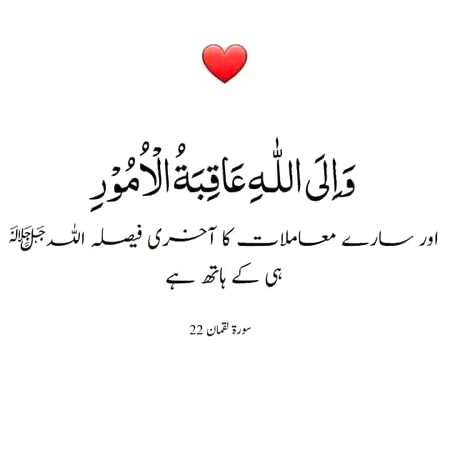 ❤️
وَاِلَى اللّٰهِ عَاقِبَةُ الْاُمُوْرِ
اور سارے معاملات کا آخری فیصلہ اللہ ﷻ
ہی کے ہاتھ ہے
سورۃ لقمان 22